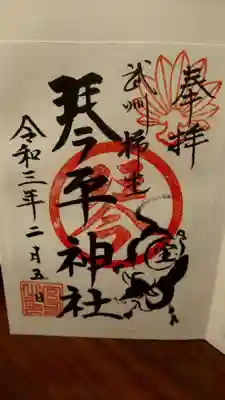 奉拝
武州柿生
琴平神社
令和三年二月五日